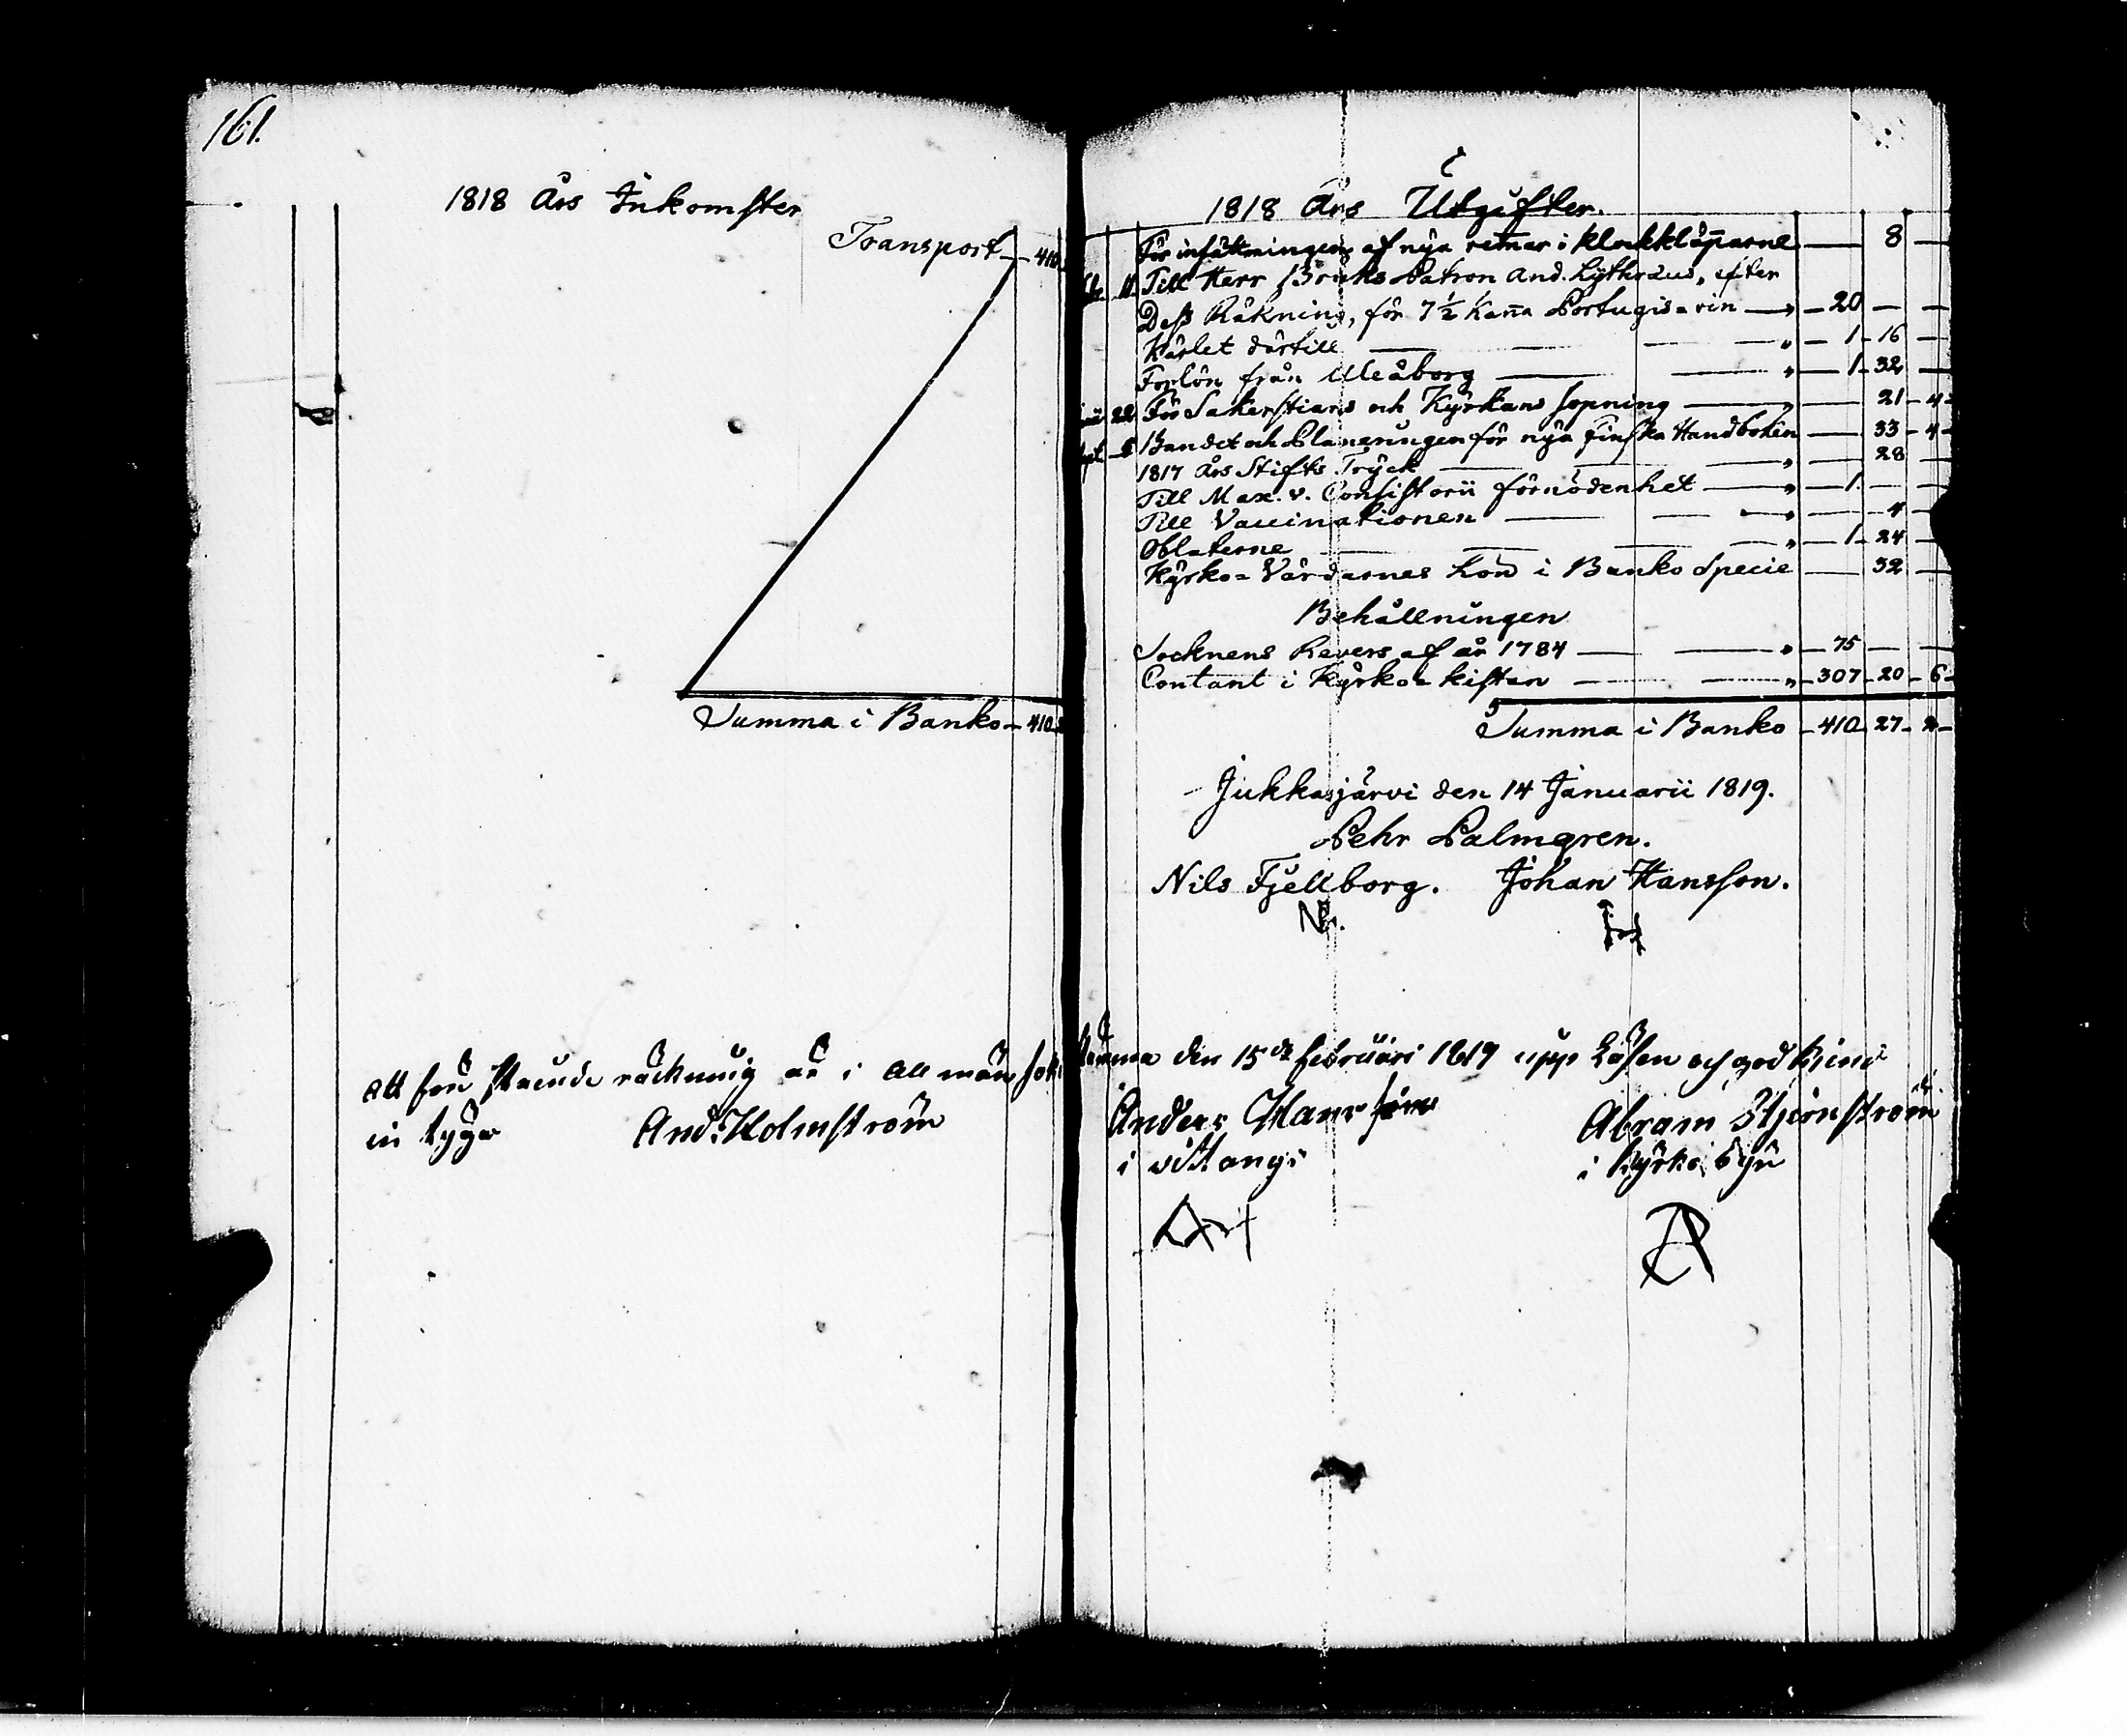 161.
1818 Års Inkomster
Transport 410
Summa i Banko 410
1818 Års Utgifter.
För insättningen af nya remar i klockkläpparne — 8 —
11 Till Herr Bruks Patron And. Lythræus, efter
Dess Räkning, för 7 1/2 Kanna Portugis. vin — 20 — —
Kärlet därtill — 1 16 —
Forlön från Uleåborg — 1 32 —
22 För Sakerstians och Kyrkans sopning — 21 4
Bandet och Planeringen för nya Finska Handboken — 33 4
1817 års Stifts Tryck — 28 —
Till Max. v. Consistorii förnödenhet — 1 — —
Till Vaccinationen — 4 —
Oblaterne — 1 24 —
Kyrko-Värdarnes Lön i Banko Specie — 32 —
Behållningen
Socknens Revers af år 1784 — 75 — —
Contant i Kyrko-kistan — 307 20 6
Summa i Banko 410 27 2
Jukkasjärvi den 14 Januarii 1819.
Pehr Palmgren.
Nils Fjellborg. Johan Hansson.
att förestående räckning är i allmän sokn
stämma den 15de februari 1819 upp läsen och god kend
in tyga And. Holmström
Anders Hansson
i vittangi
Abram Stjernström
i Kyrko byn